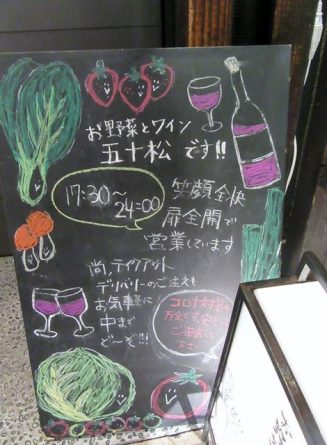 お野菜とワイン
五十松です!!
17:30〜
24:00
笑顔全快
扉全開で
営業しています
尚、テイクアウト
デリバリーのご注文も
お気軽に
中まで
ど〜ぞ!!!
コロナ対策も
万全です
ご来店
下さい